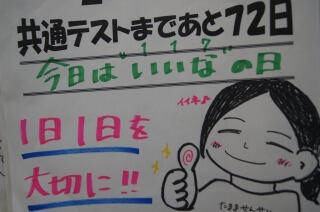 共通テストまであと72日
1 1 7
今日は"いいな"の日
イイネ♪
1日1日を
大切に!!
たまませんせい